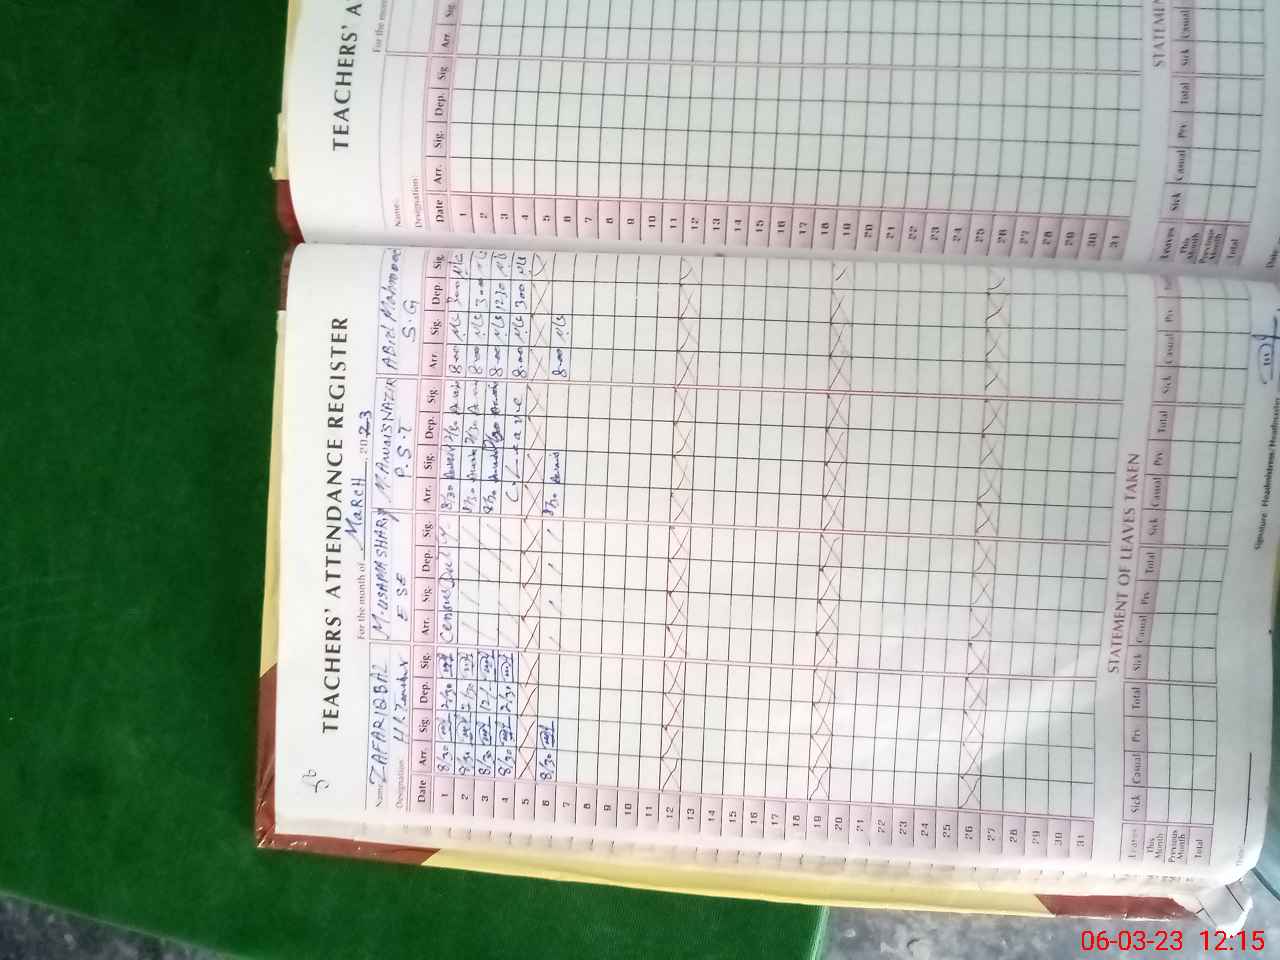 TEACHERS' ATTENDANCE REGISTER
For the month of MaRCH 2023
Name ZAFAR IQBAL M. USAMA SHARY M. AWAIS NAZIR ABid Mahmood
Designation H. Teacher E S E P. S. T S. G
Date Arr. Sig. Dep. Sig. Arr. Sig. Dep. Sig. Arr. Sig. Dep. Sig. Arr. Sig. Dep. Sig.
1 8/30 2/30 Census 8/30 2/30 8-00 300
2 8/30 2/30 8/30 2/30 8-00 300
3 8/30 12/ 8/30 8-00 1230
4 8/30 2/30 C/Leave 8-00 300
5
6 8/30 8/30 8-00
7
8
9
10
11
12
13
14
15
16
17
18
19
20
21
22
23
24
25
26
27
28
29
30
31
STATEMENT OF LEAVES TAKEN
Leaves Sick Casual Prv. Total Sick Casual Prv. Total Sick Casual Prv. Total Sick Casual Prv.
This Month
Previous Month
Total
Signature Headmistress / Headmaster
TEACHERS' A
For the mon
Name:
Designation:
Date Arr. Sig. Dep. Sig. Arr. Sig.
1
2
3
4
5
6
7
8
9
10
11
12
13
14
15
16
17
18
19
20
21
22
23
24
25
26
27
28
29
30
31
STATEMEN
Leaves Sick Casual Prv. Total Sick Casual
This Month
Previous Month
Total
06-03-23 12:15